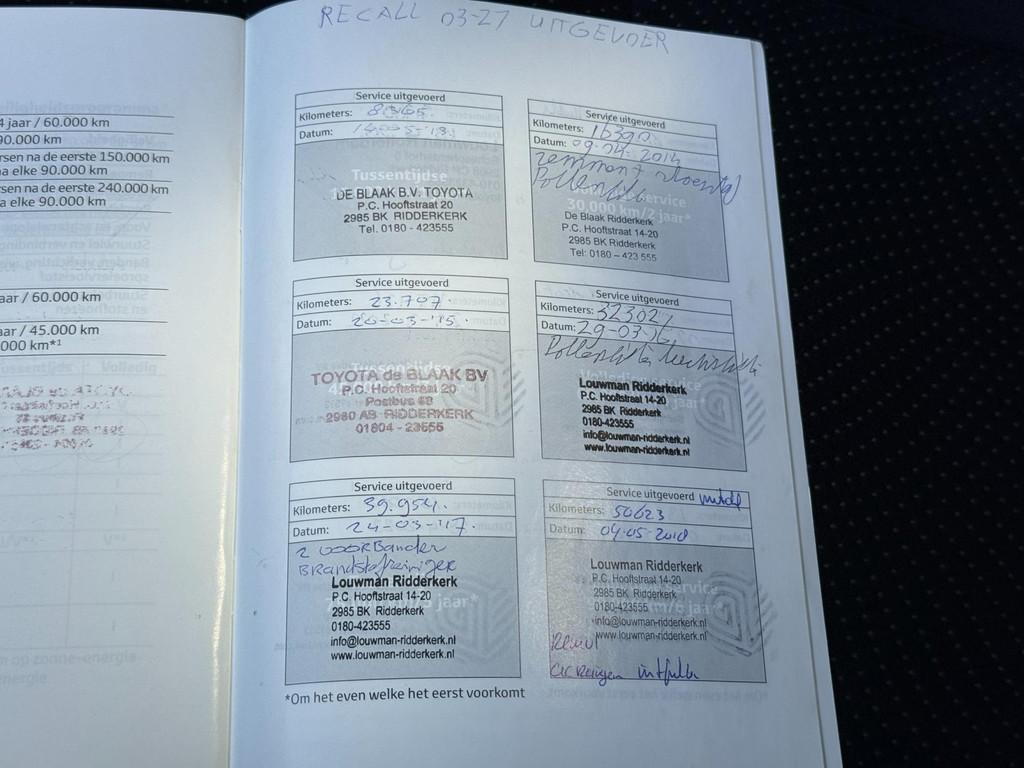 RECALL 03-27 UITGEVOER
4 jaar / 60.000 km
90.000 km
rsen na de eerste 150.000 km
na elke 90.000 km
rsen na de eerste 240.000 km
a elke 90.000 km
aar / 60.000 km
aar / 45.000 km
000 km*¹
Service uitgevoerd
Kilometers: 8365
Datum:
Tussentijdse
DE BLAAK B.V. TOYOTA
P.C. Hooftstraat 20
2985 BK RIDDERKERK
Tel. 0180 - 423555
Service uitgevoerd
Kilometers: 16390
Datum: 09-04-2014
remmen vloeistof
Pollenfilter
Service
30.000 km/2 jaar*
De Blaak Ridderkerk
P.C. Hooftstraat 14-20
2985 BK Ridderkerk
Tel: 0180 – 423 555
Service uitgevoerd
Kilometers: 23.707.
Datum: 20-03-'15.
TOYOTA de BLAAK BV
P.C. Hooftstraat 20
Postbus 68
2980 AB RIDDERKERK
01804 - 23555
Service uitgevoerd
Kilometers: 32302
Datum: 29-03-16
Pollenfilter luchtfilter
Louwman Ridderkerk
P.C. Hooftstraat 14-20
2985 BK Ridderkerk
0180-423555
info@louwman-ridderkerk.nl
www.louwman-ridderkerk.nl
Service uitgevoerd
Kilometers: 39.954.
Datum: 24-03-'17.
2 VOORBanden
BRandstofreiniger
jaar*
Louwman Ridderkerk
P.C. Hooftstraat 14-20
2985 BK Ridderkerk
0180-423555
info@louwman-ridderkerk.nl
www.louwman-ridderkerk.nl
Service uitgevoerd
Kilometers: 50623
Datum: 04-05-2018
Louwman Ridderkerk
P.C. Hooftstraat 14-20
2985 BK Ridderkerk
0180-423555
info@louwman-ridderkerk.nl
www.louwman-ridderkerk.nl
*Om het even welke het eerst voorkomt